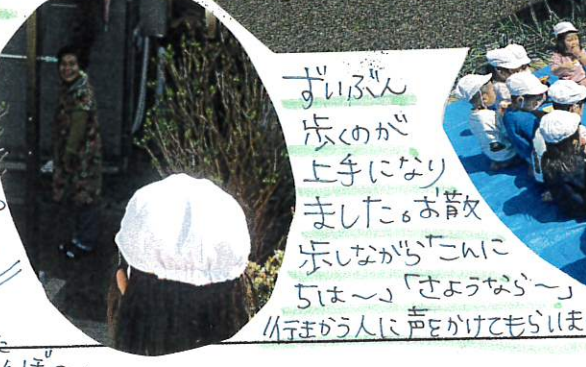 ずいぶん
歩くのが
上手になり
ました。お散
歩しながら「こんに
ちは～」「さようなら～」
行きかう人に声をかけてもらいま